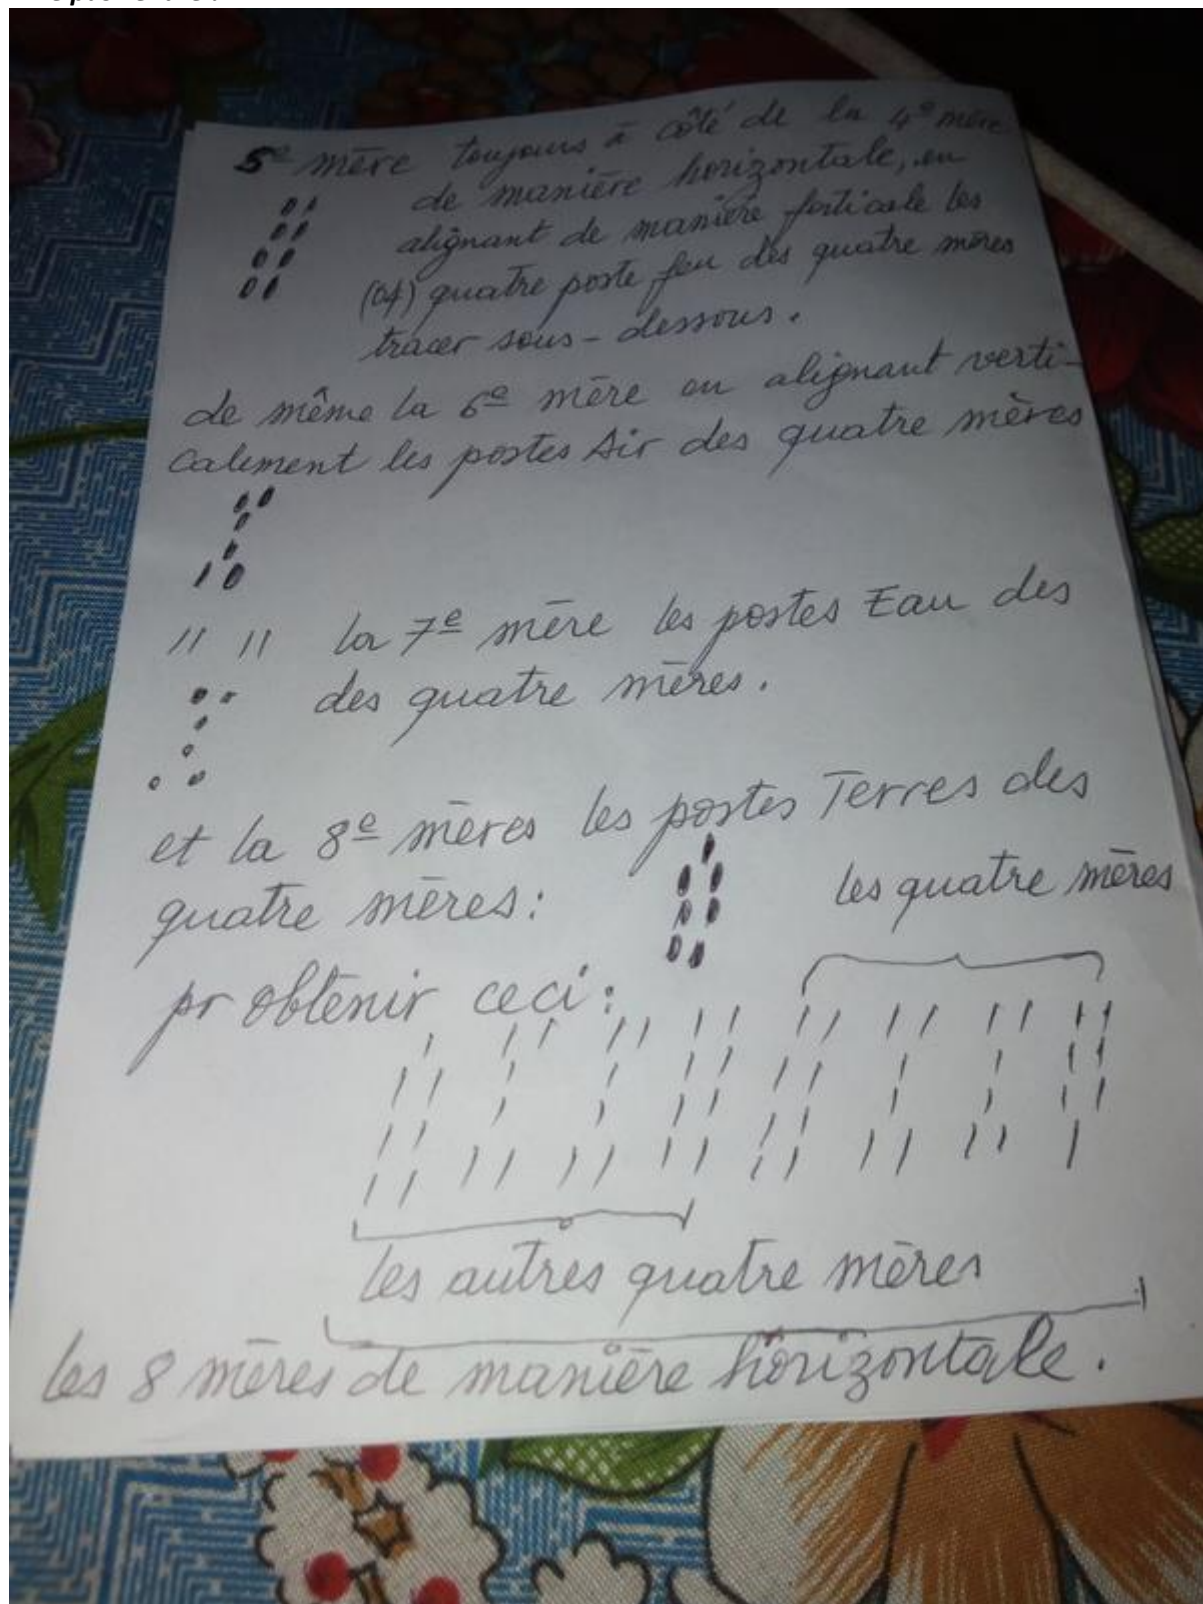 5e mère toujours à côté de la 4e mère
de manière horizontale, en
alignant de manière ferticale les
(04) quatre poste feu des quatre mères
tracer sous-dessous.
de même la 6e mère en alignant verti-
calement les postes Air des quatre mères
la 7e mère les postes Eau des
des quatre mères.
et la 8e mères les postes Terres des
quatre mères:
les quatre mères
pr obtenir ceci:
les autres quatre mères
les 8 mères de manière horizontale.